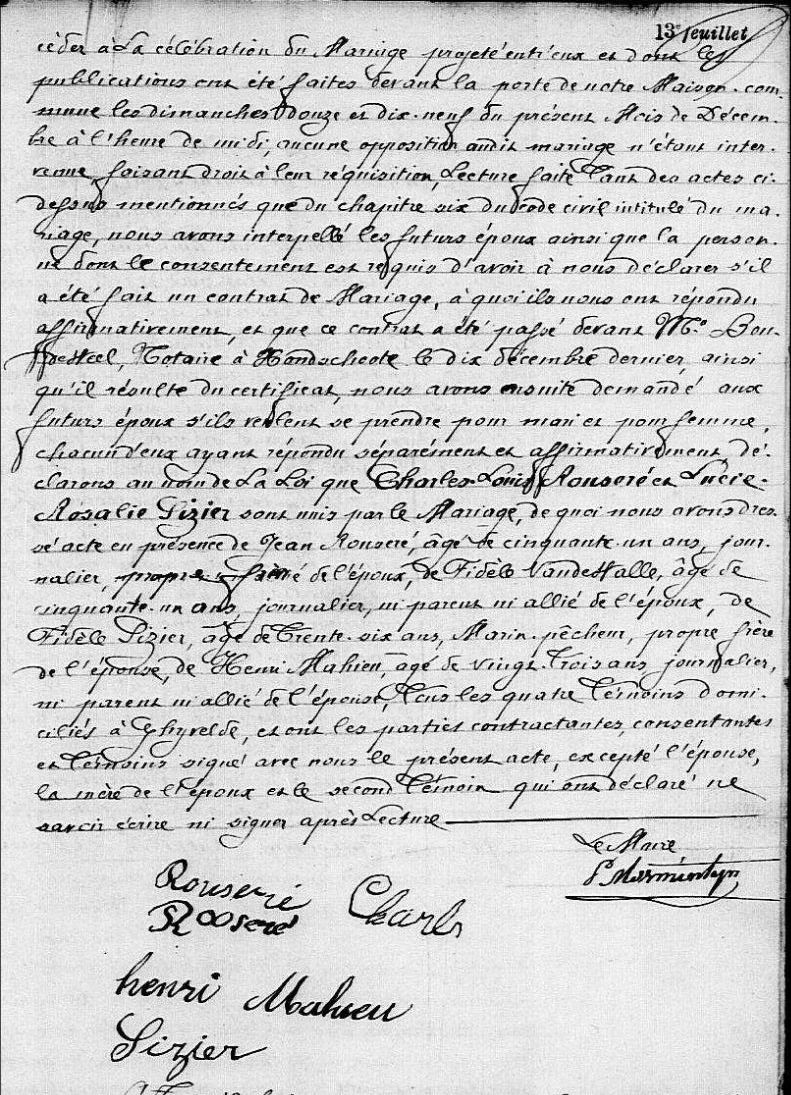 13e feuillet
céder à La célébration du Mariage projeté entr'eux et dont les
publications ont été faites devant la porte de notre Maison com-
mune les dimanches douze et dix-neuf du présent Mois de Décem-
bre à l'heure de midi, aucune opposition audit mariage n'étant inter-
venue, faisant droit à leur réquisition, Lecture faite Tant des actes ci-
dessus mentionnés que du chapitre six du code civil intitulé du ma-
riage, nous avons interpellé les futurs époux ainsi que la person-
ne dont le consentement est requis d'avoir à nous déclarer s'il
a été fait un contrat de Mariage, à quoi ils nous ont répondu
affirmativement, et que ce contrat a été passé devant Me.
Notaire à Hondschoote le dix décembre dernier, ainsi
qu'il résulte du certificat, nous avons ensuite demandé aux
futurs époux s'ils veulent se prendre pour mari et pour femme,
chacun d'eux ayant répondu séparément et affirmativement, dé-
clarons au nom de La Loi que Charles-Louis Rouseré et Lucie-
Rosalie Sizier sont unis par le Mariage, de quoi nous avons dres-
sé acte en présence de Jean Rouseré, âgé de cinquante-un ans, jour-
nalier, propre frère de l'époux, de Fidèle VandeWalle, âgé de
cinquante-un ans, journalier, ni parent ni allié de l'époux, de
Fidèle Sizier, âgé de Trente-six ans, Marin-pêcheur, propre frère
de l'épouse, de Henri Mahieu, âgé de vingt-Trois ans journalier,
ni parent ni allié de l'épouse, Tous les quatre Témoins domi-
ciliés à Ghyvelde, et ont les parties contractantes, consentantes
et Témoins signé avec nous le présent acte, excepté l'épouse,
la mère de l'époux et le second Témoin qui ont déclaré ne
savoir écrire ni signer après Lecture
Le Maire
Rouseré Charles
Rooseré
henri Mahieu
Sizier